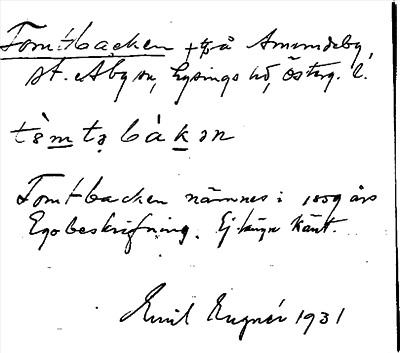 Tomtbacken på Amundeby,
St. Åby sn, Lysings hd, Österg. l.
tòmtạ bákən
Tomtbacken nämnes i 1889 års
Egobeskrifning. Ej längre känt.
Emil Eugnér 1931